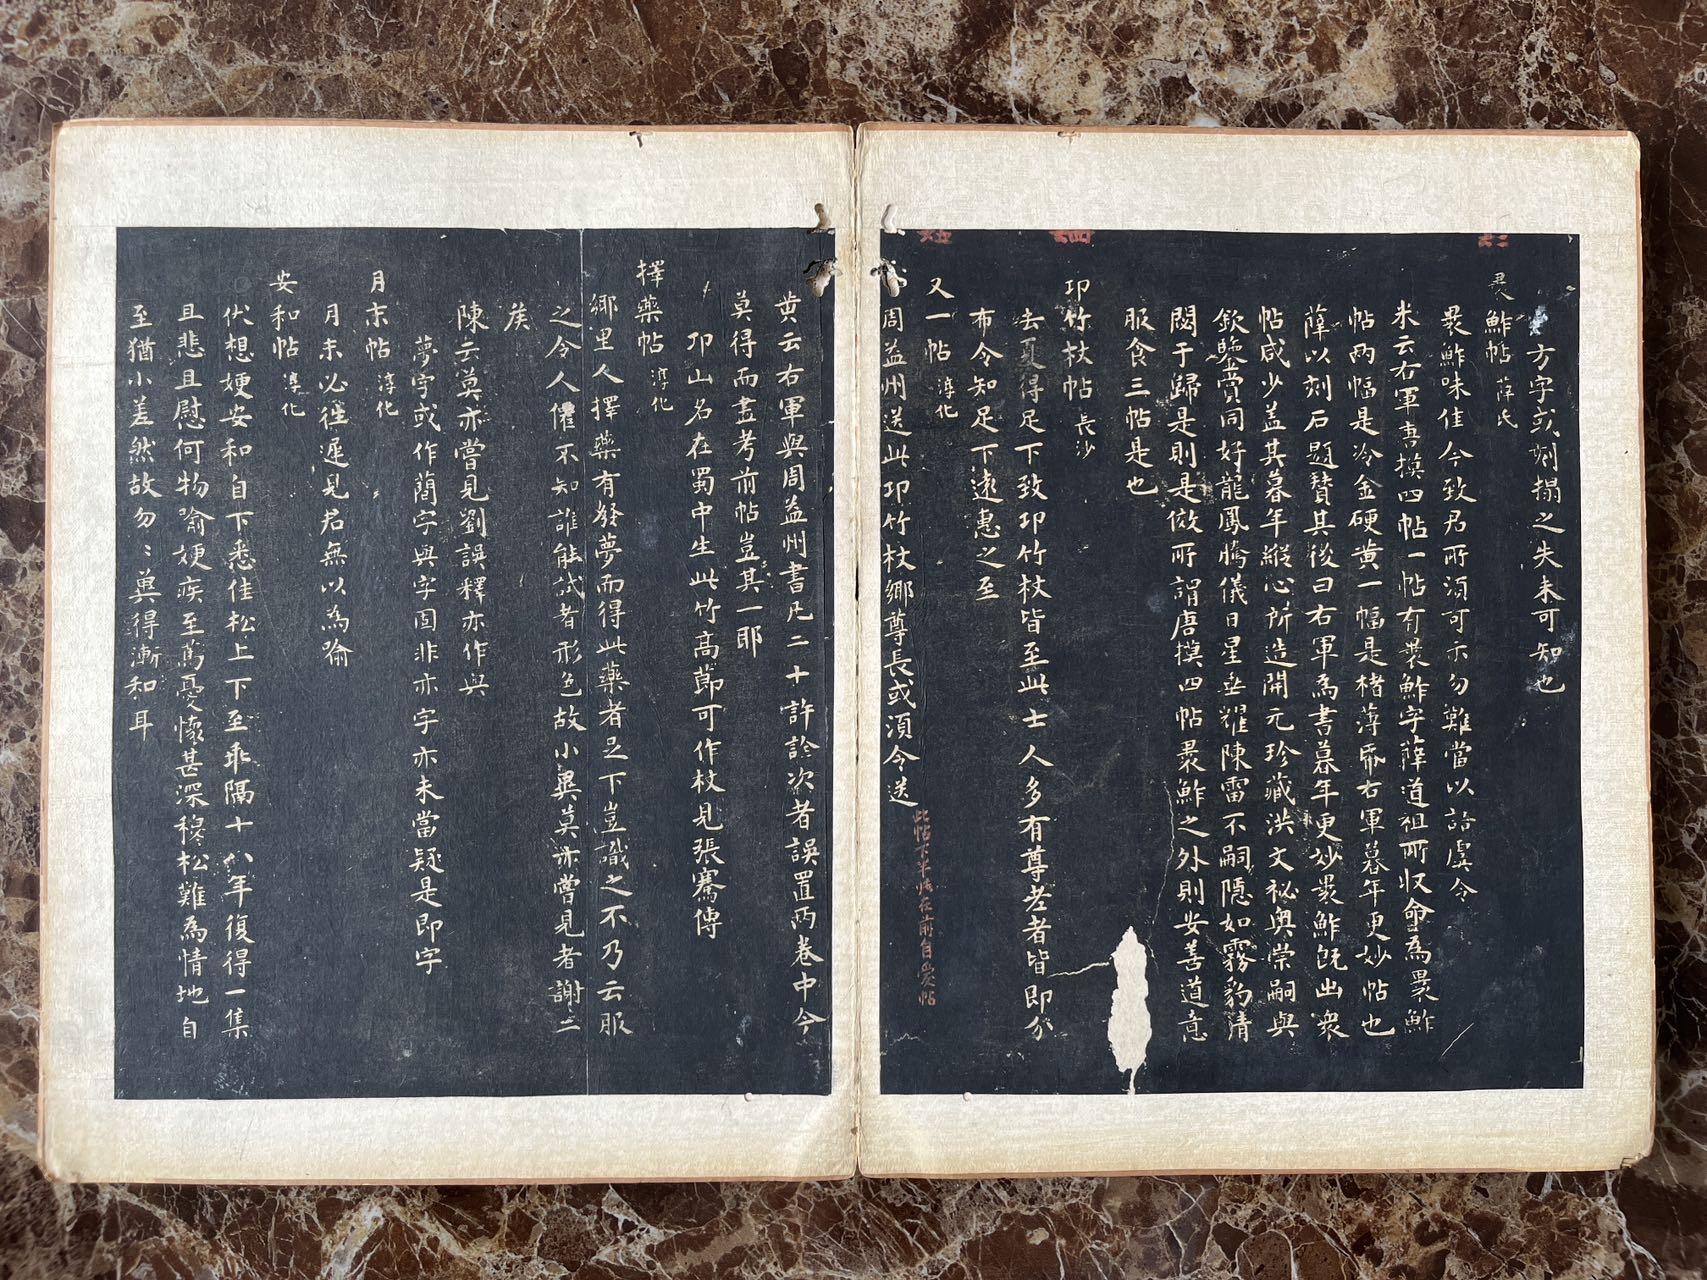 方字或刻搨之失未可知也
裹鮓帖 薛氏
裹鮓味佳今致君所須可示勿難當以語虞令
米云右軍唐摸四帖一帖有裹鮓字薛道祖所収命為裹鮓
帖兩幅是冷金硬黄一幅是楮薄帋右軍暮年更妙帖也
薛以刻石題賛其後曰右軍為書暮年更妙裹鮓既出衆
帖咸少盖其暮年縱心所造開元珍藏洪文祕輿崇嗣與
欽鑒賞同好龍鳳騰儀日星垂耀陳雷不嗣隱如霧豹清
閟于歸是則是傚所謂唐摸四帖裹鮓之外則安善道意
服食三帖是也
邛竹杖帖 長沙
去夏得足下致邛竹杖皆至此士人多有尊老者皆即分
布令知足下遠惠之至
又一帖 淳化
周益州送此邛竹杖鄉尊長或須今送
此帖下半帖在前自愛帖
黄云右軍與周益州書凡二十許詮次者誤置兩卷中今
莫得而盡考前帖豈其一耶
邛山名在蜀中生此竹高節可作杖見張騫傳
擇藥帖 淳化
鄉里人擇藥有發夢而得此藥者足下豈識之不乃云服
之令人僊不知誰能試者形色故小異莫亦嘗見者謝二
侯
陳云莫亦嘗見劉誤釋亦作與
夢字或作蘭字與字固非亦字亦未當疑是即字
月末帖 淳化
月末必往遲見君無以為喻
安和帖 淳化
伏想嫂安和自下悉佳松上下至乖隔十八年復得一集
且悲且慰何物喻嫂疾至篤憂懷甚深穆松難為情地自
至猶小差然故勿〻冀得漸和耳